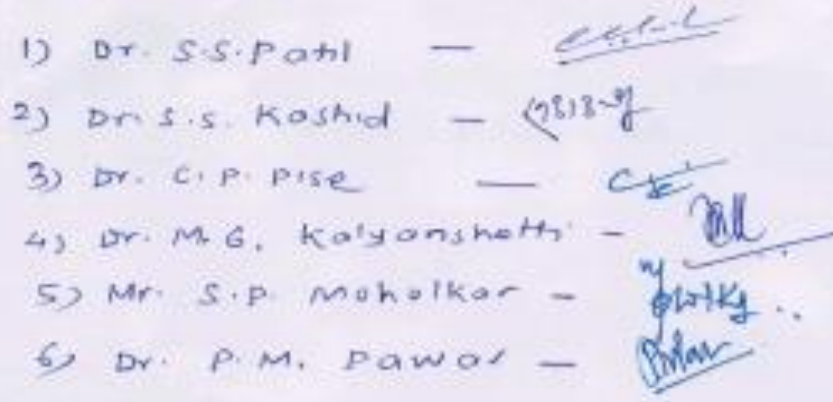 1) Dr. S.S. Patil —
2) Dr. S.S. Kashid —
3) Dr. C.P. Pise —
4) Dr. M.G. Kalyanshetti —
5) Mr. S.P. Moholkar —
6) Dr. P.M. Pawar —